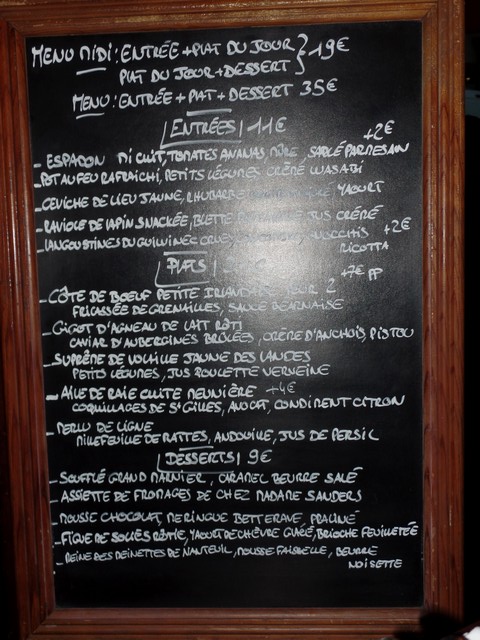 MENU MIDI : ENTRÉE + PLAT DU JOUR } 19€
PLAT DU JOUR + DESSERT
MENU : ENTRÉE + PLAT + DESSERT 35€
ENTRÉES 11€
+2€
- ESPADON MI CUIT, TOMATES ANANAS, MÛRE SABLÉ PARMESAN
- POT AU FEU RAFRAICHI, PETITS LÉGUMES CRÈME WASABI
- CEVICHE DE LIEU JAUNE, RHUBARBE YAOURT
- RAVIOLE DE LAPIN SNACKÉE, BLETTE JUS CRÉMÉ
- LANGOUSTINES DU GUILVINEC +2€
RICOTTA
PLATS
+7€ PP
- CÔTE DE BOEUF PETITE POUR 2
FRICASSÉE DE GRENAILLES, SAUCE BÉARNAISE
- GIGOT D'AGNEAU DE LAIT RÔTI
CAVIAR D'AUBERGINES BRÛLÉES, CRÈME D'ANCHOIS, PISTOU
- SUPRÊME DE VOLAILLE JAUNE DES LANDES
PETITS LÉGUMES, JUS POULETTE VERVEINE
- AILE DE RAIE CUITE MEUNIÈRE +4€
COQUILLAGES DE ST GILLES, AVOCAT, CONDIMENT CITRON
- MERLU DE LIGNE
MILLEFEUILLE DE RATTES, ANDOUILLE, JUS DE PERSIL
DESSERTS 9€
- SOUFFLÉ GRAND MARNIER, CARAMEL BEURRE SALÉ
- ASSIETTE DE FROMAGES DE CHEZ MADAME SANDERS
- MOUSSE CHOCOLAT, MERINGUE BETTERAVE, PRALINÉ
- FIGUE DE SOLLIÈS RÔTIE, YAOURT DE CHÈVRE GLACÉ, BRIOCHE FEUILLETÉE
- REINE DES REINETTES DE NANTEUIL, MOUSSE FAISSELLE, BEURRE
NOISETTE